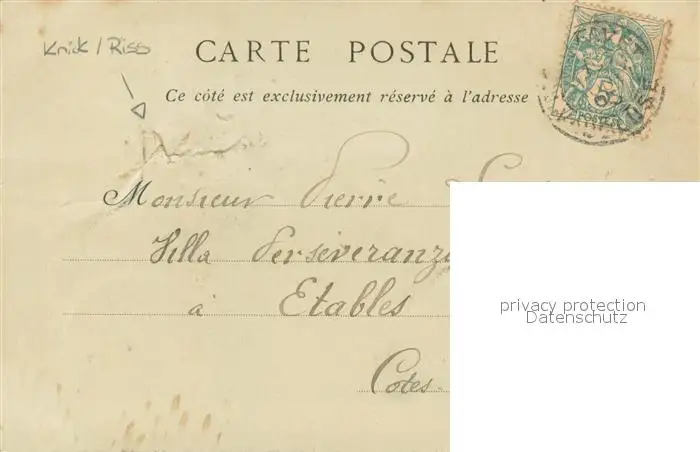 Knick / Riss
CARTE POSTALE
Ce côté est exclusivement réservé à l'adresse
POSTES
Monsieur Pierre
Villa Perseveranz
à Etables
Cotes-
privacy protection
Datenschutz